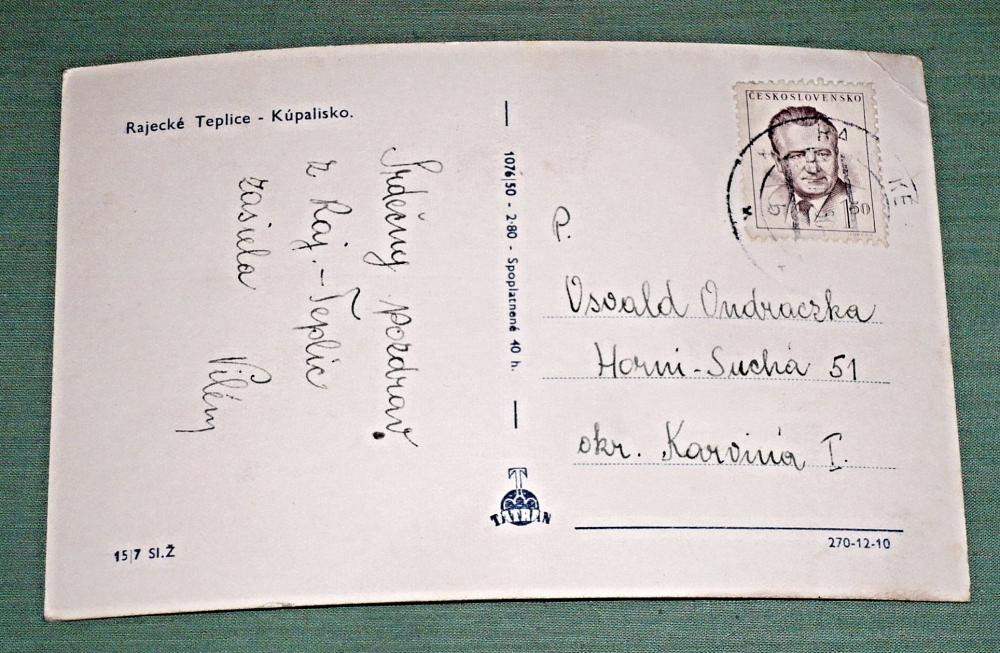 Rajecké Teplice - Kúpalisko.
Srdečný pozdrav
z Raj. - Teplic
zasiela
Vilém
15|7 Sl.Ž
1076|50 - 2·80 - Spoplatnené 40 h.
TATRAN
ČESKOSLOVENSKO
1 50
P.
Osvald Ondraczka
Horni-Suchá 51
okr. Karviná I.
270-12-10